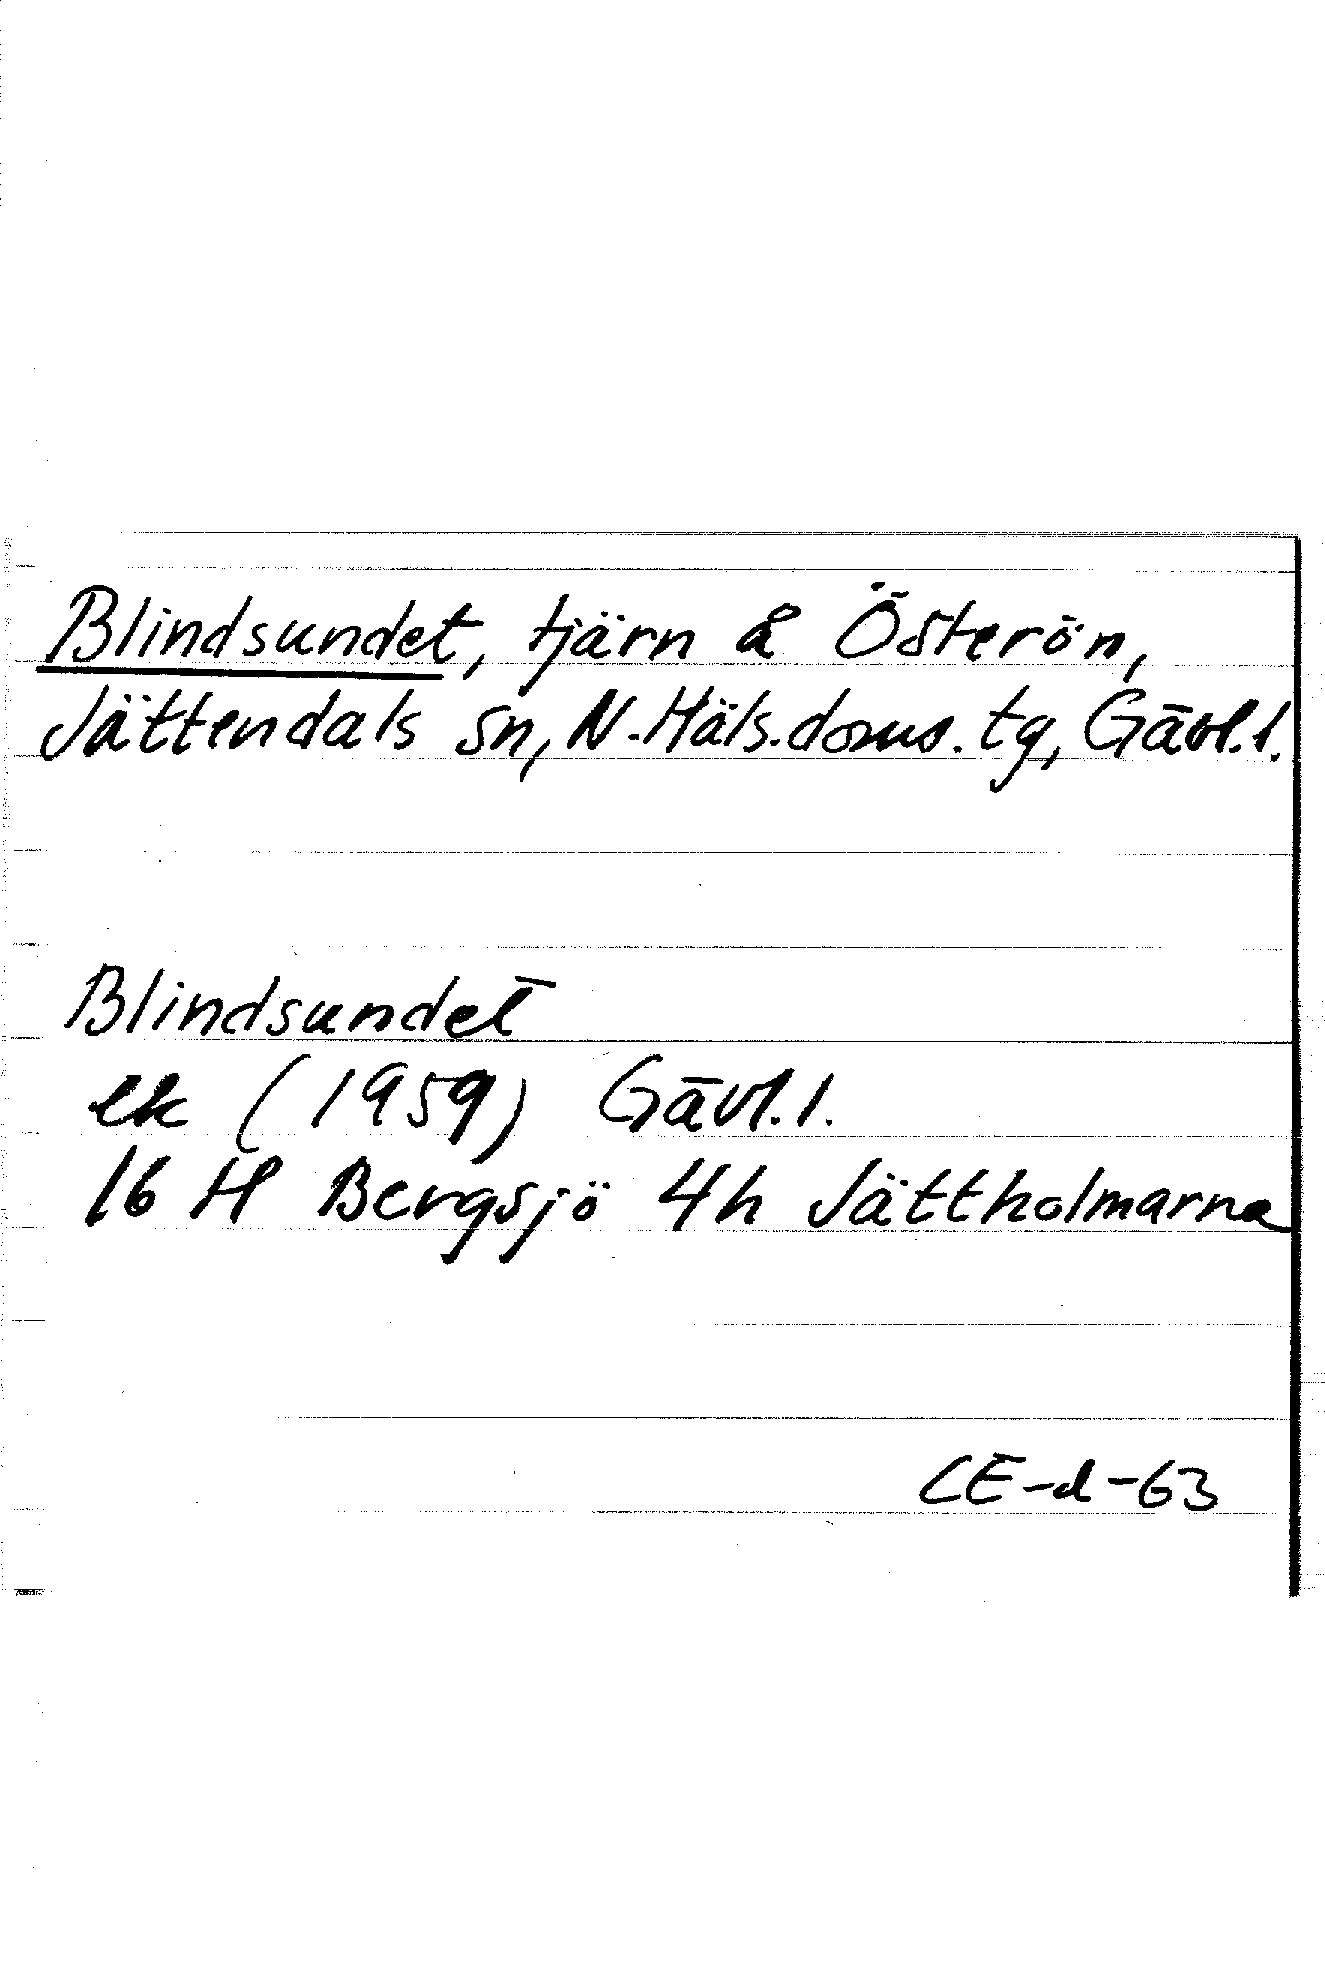 Blindsundet, tjärn å Österön,
Jättendals sn, N.Häls.doms.tg, Gävl.l.
Blindsundet
ek (1959) Gävl.l.
16 H Bergsjö 4h Jättholmarna
CE-d-63